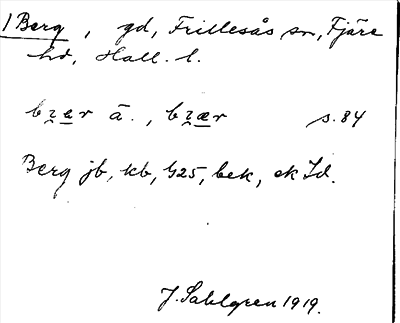 1 Berg, gd, Frillesås sn, Fjäre
hd, Hall. l.
s. 84
Berg jb, kb, G25, bek, ek Id.
J. Sahlgren 1919.